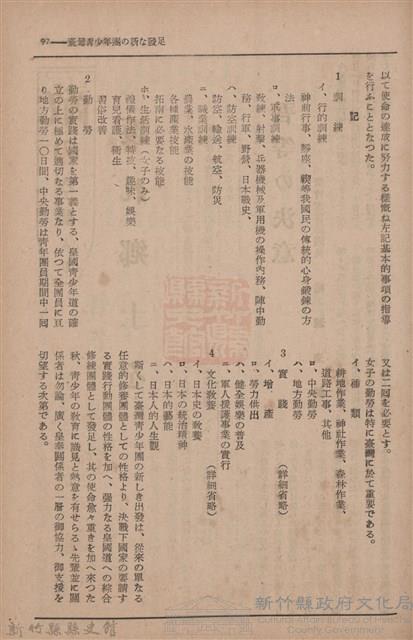 97——臺灣靑少年團の新な發足
以て使命の達成に努力する樣概ね左記基本的事項の指導
を行ふこととなつた。
記
1 訓練
イ、行的訓練
神前行事、靜座、禊等我國民の傳統的心身鍛鍊の方
法
ロ、軍事訓練
敎練、射擊、兵器機械及軍用機の操作內務、陣中勤
務、行軍、野營、日本戰史、
ハ、防空訓練
防空、輸送、航空、防災
ニ、職業訓練
農業、水產業の技能
各種產業技能
拓南に必要なる技能
ホ、生活訓練(女子のみ)
禮儀作法、特技、趣味、娛樂
育兒看護、衞生
習俗改善
2 勤勞
勤勞の實踐は國家を第一義とする、皇國靑少年道の確
立の上に極めて適切なる事業なり、依つて全團員に亘
り地方勤勞一〇日間、中央勤勞は靑年團員期間中一回
又は二回を必要とす。
女子の勤勞は特に臺灣に於て重要である。
イ、種類
耕地作業、神社作業、森林作業、
道路工事、其他
ロ、中央勤勞
ハ、地方勤勞
3 實踐 (詳細省略)
イ、增產
ロ、勞力供出
ハ、健全娛樂の普及
ニ、軍人援護事業の實行
4 文化敎養 (詳細省略)
イ、日本史の敎養
ロ、日本の統治精神
ハ、日本的藝能
ニ、日本人的人生觀
斯くして臺灣靑少年團の新しき出發は、從來の單なる
任意的修養團體としての性格より、決戰下國家の要請す
る實踐行動團體の性格を加へ、强力なる皇國道への綜合
修練團體として發足し、其の使命愈々重きを加へ來つた
秋、靑少年の敎育に識見と熱意を有せらるゝ先輩並に關
係者は勿論、廣く皇奉關係者の一層の御協力、御支援を
切望する次第である。
新竹縣政府文化局
Cultural Affairs Bureau of Hsinchu County Government
新竹縣縣史館